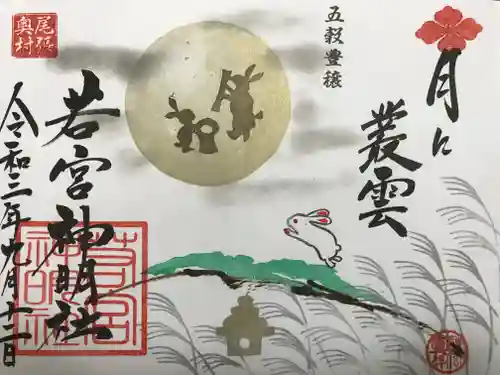 五穀豊穣
月に
叢雲
尾張
奥村
若宮神明社
令和三年九月十二日
若宮
神明社